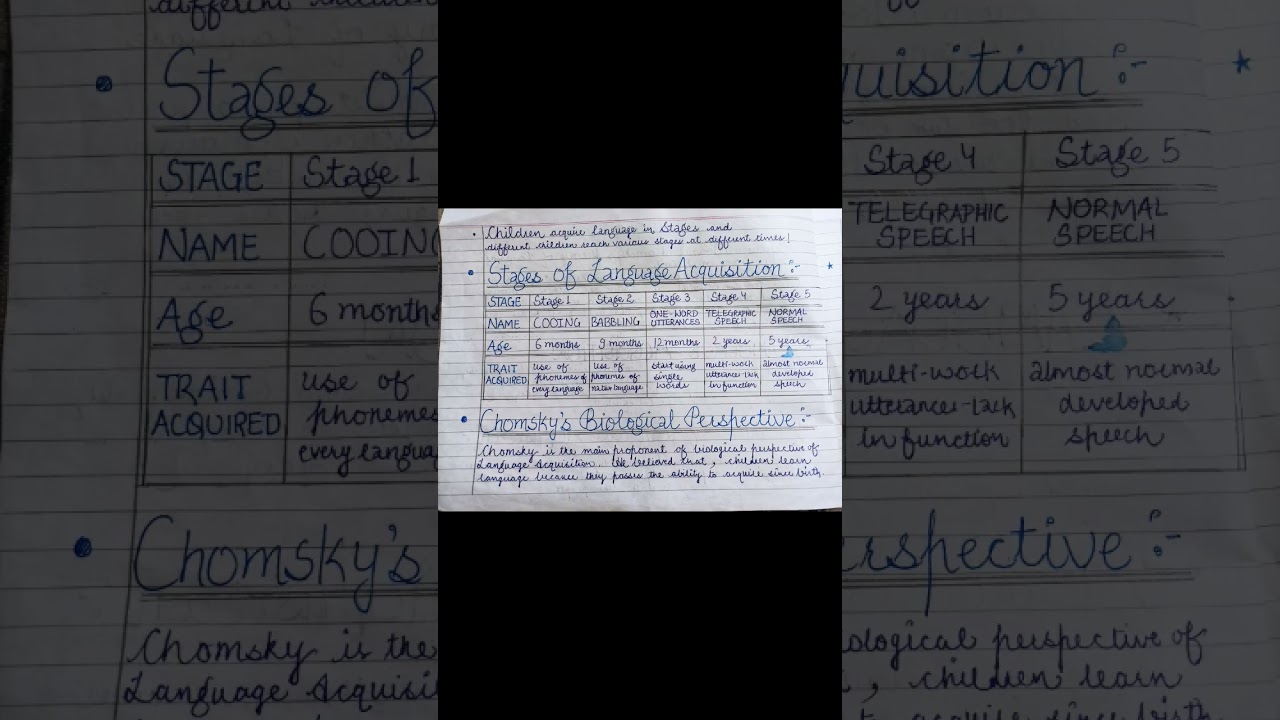 Children acquire language in stages and
different children reach various stages at different times!
Stages of Language Acquisition :-
STAGE Stage 1 Stage 2 Stage 3 Stage 4 Stage 5
NAME COOING BABBLING ONE-WORD UTTERANCES TELEGRAPHIC SPEECH NORMAL SPEECH
Age 6 months 9 months 12 months 2 years 5 years
TRAIT ACQUIRED use of phonemes of every language use of phonemes of native language start using single words multi-work utterances-lack in function almost normal developed speech
Chomsky's Biological Perspective :-
Chomsky is the main proponent of biological perspective of
Language Acquisition. He believed that, children learn
language because they posses the ability to acquire since birth.